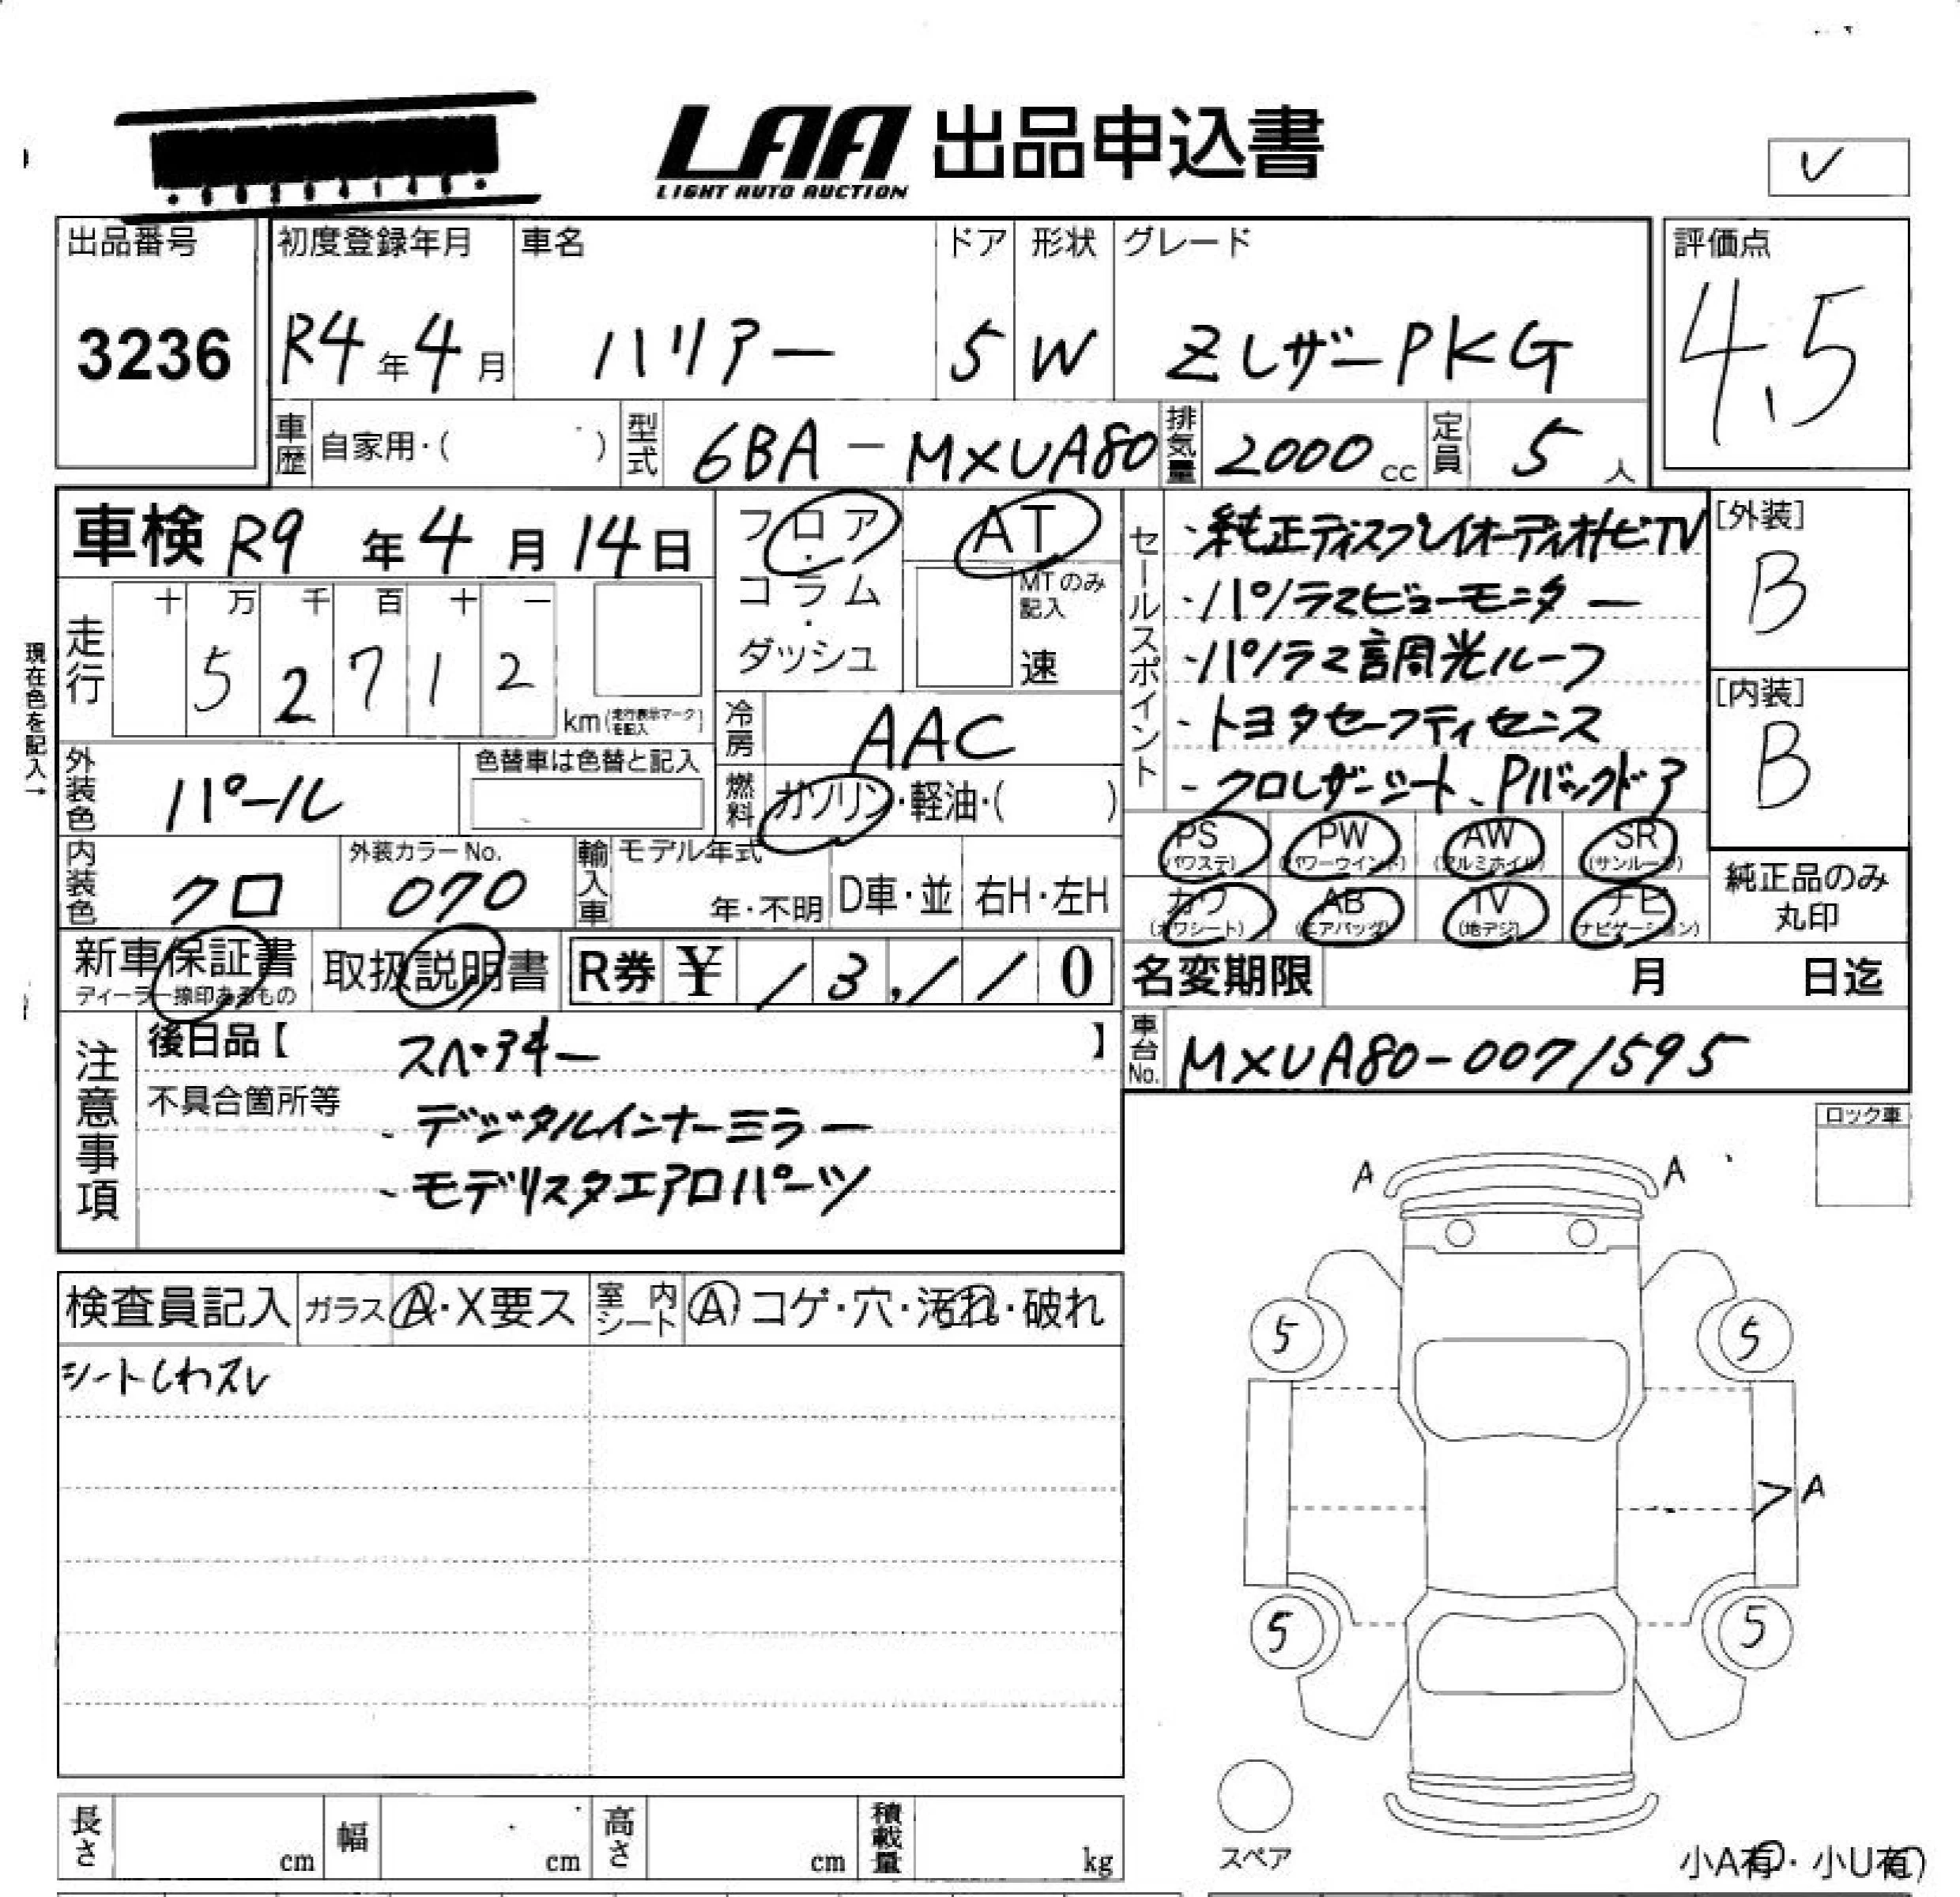 LAA 出品申込書
LIGHT AUTO AUCTION
出品番号
3236
初度登録年月
R4年4月
車名
ハリアー
ドア
5
形状
W
グレード
Zレザー PKG
評価点
4.5
車歴 自家用・( )
型式 6BA-MXUA80
排気量 2000cc
定員 5人
車検 R9年4月14日
フロア・コラム・ダッシュ
AT
MTのみ記入
速
セールスポイント
・純正ディスプレイオーディオナビTV
・パノラマビューモニター
・パノラマ調光ルーフ
・トヨタセーフティセンス
・クロレザーシート、Pバックドア
[外装]
B
[内装]
B
現在色を記入→
走行
十万千百十一
52712
km(走行表示マークを記入)
冷房 AAC
外装色 パール
色替車は色替と記入
燃料 ガソリン・軽油・( )
内装色 クロ
外装カラーNo.
070
輸入車 モデル年式
年・不明
D車・並
右H・左H
PS(パワステ) PW(パワーウインド) AW(アルミホイル) SR(サンルーフ)
カワ(カワシート) AB(エアバッグ) TV(地デジ) ナビ(ナビゲーション)
純正品のみ丸印
新車保証書
ディーラー捺印あるもの
取扱説明書
R券 ¥
0
名変期限 月 日迄
車台No. MXUA80-0071595
注意事項
後日品【 スペアキー 】
不具合箇所等
・デジタルインナーミラー
・モデリスタエアロパーツ
ロック車
A A
検査員記入 ガラス A・X要ス 室内シート A コゲ・穴・汚れ・破れ
シートしわスレ
5 5
A
5 5
スペア
小A有・小U有
長さ cm
幅 cm
高さ cm
積載量 kg